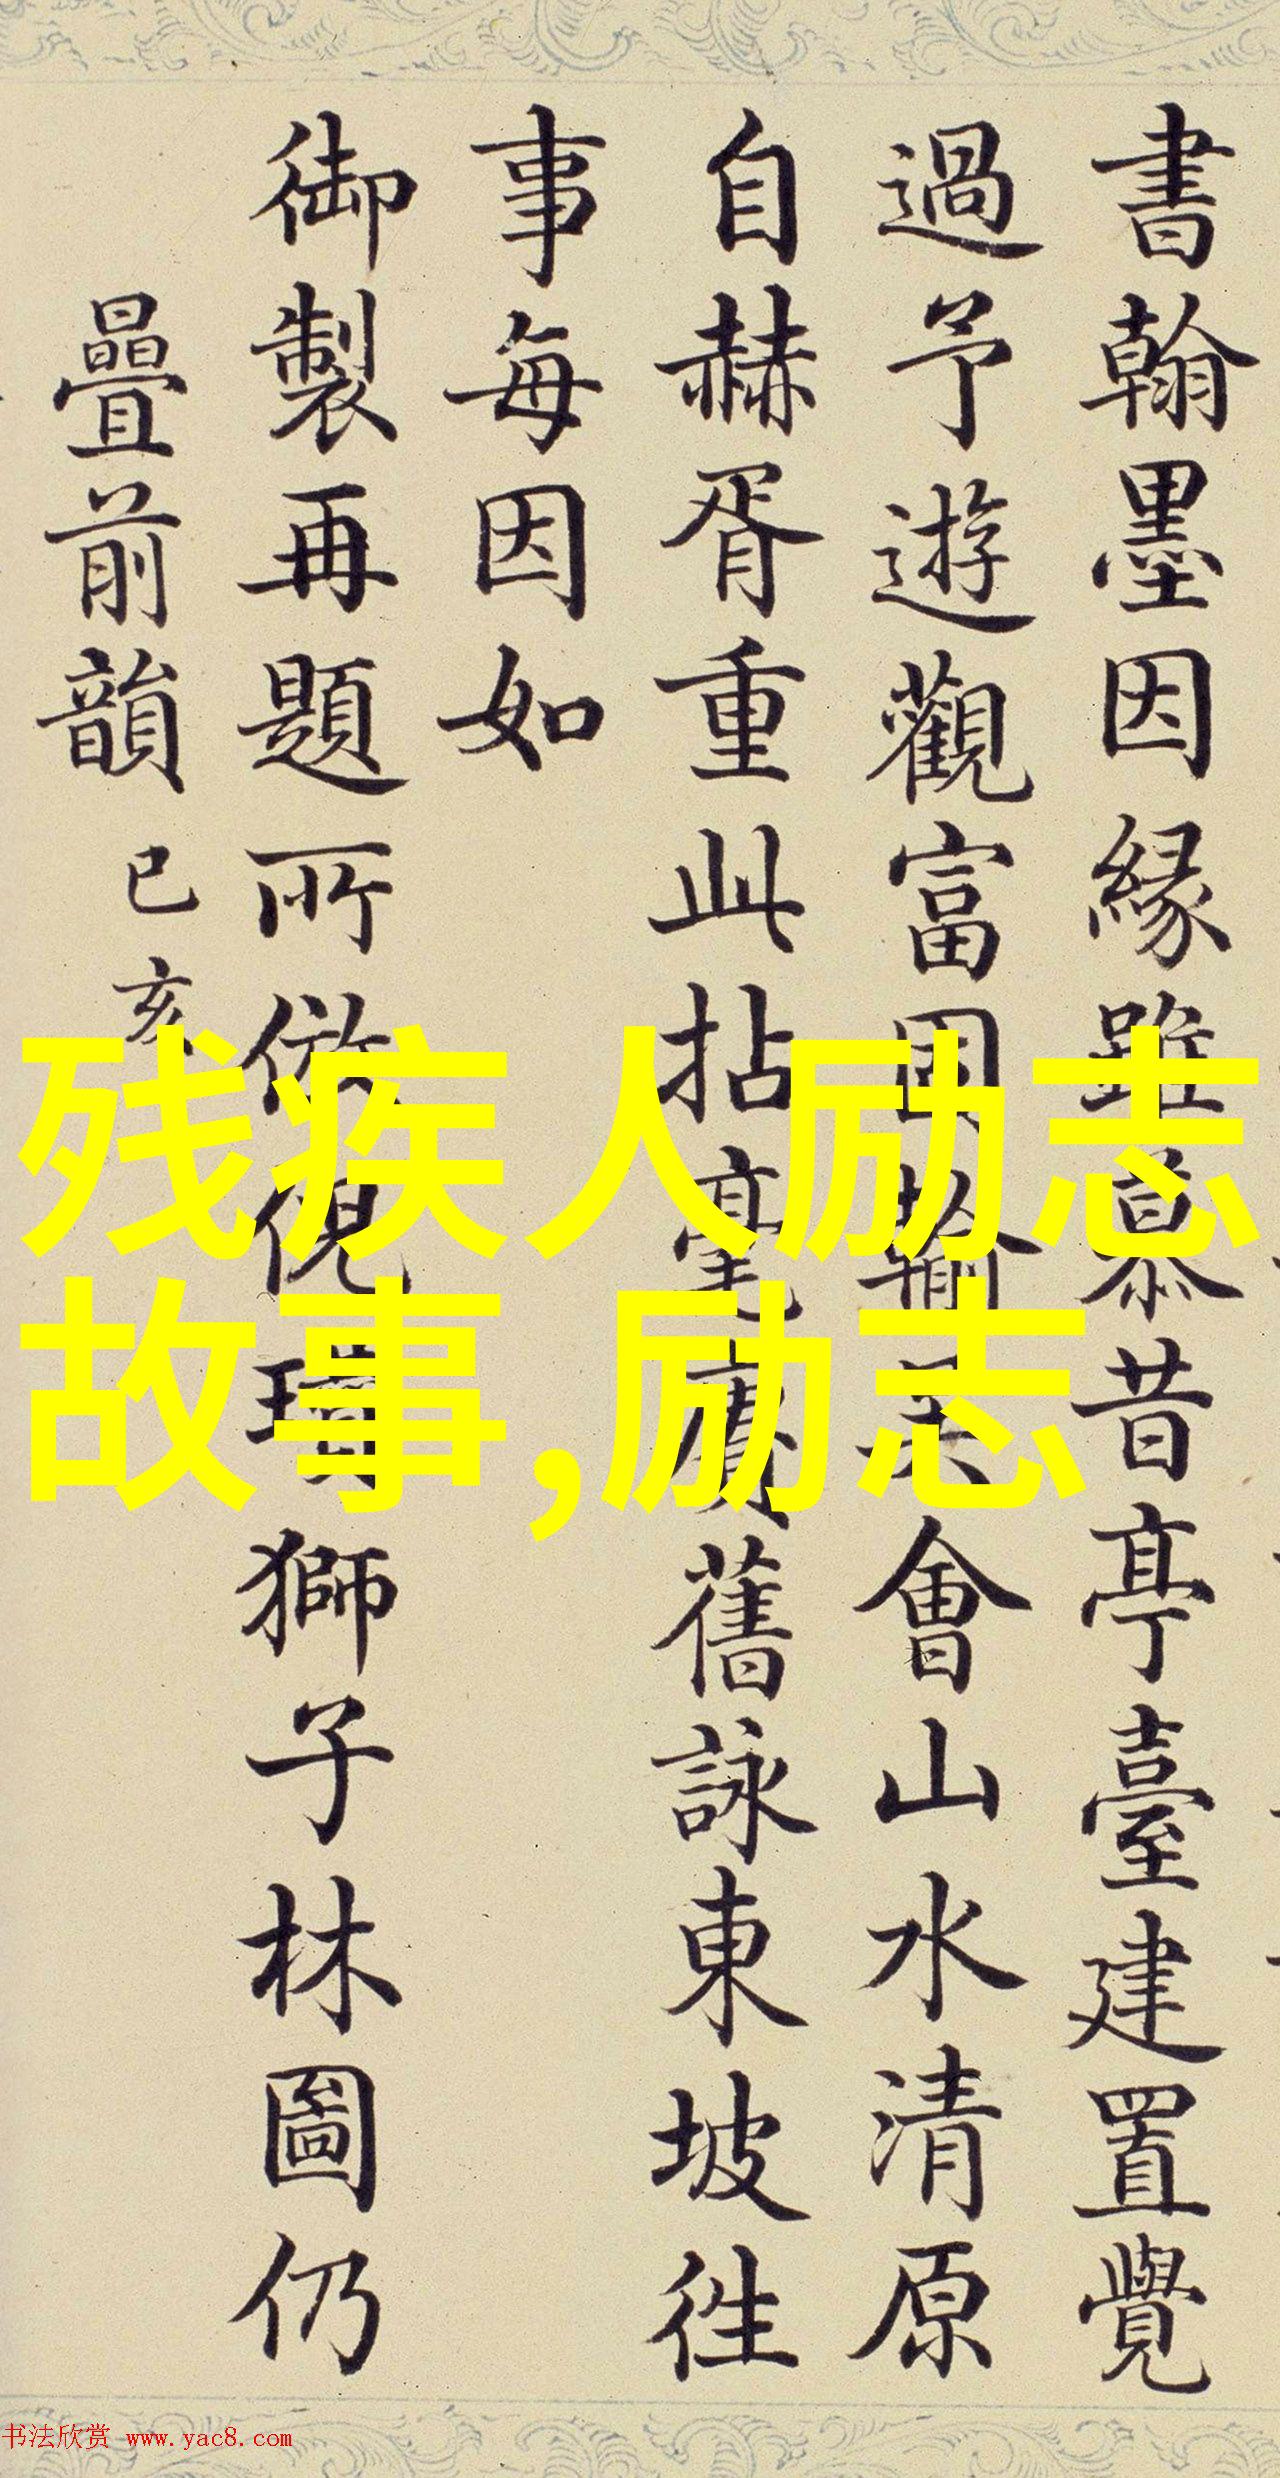 書翰墨因緣雖慕昔亭臺建置覺
過予遊觀富因輸美會山水清原
自赫胥重此拈毫賡舊詠東坡徃
事每因如
御製再題所倣倪瓚獅子林圖仍
疊前韻 己亥
残疾人励志
故事,励志
书法欣赏 www.yac8.com